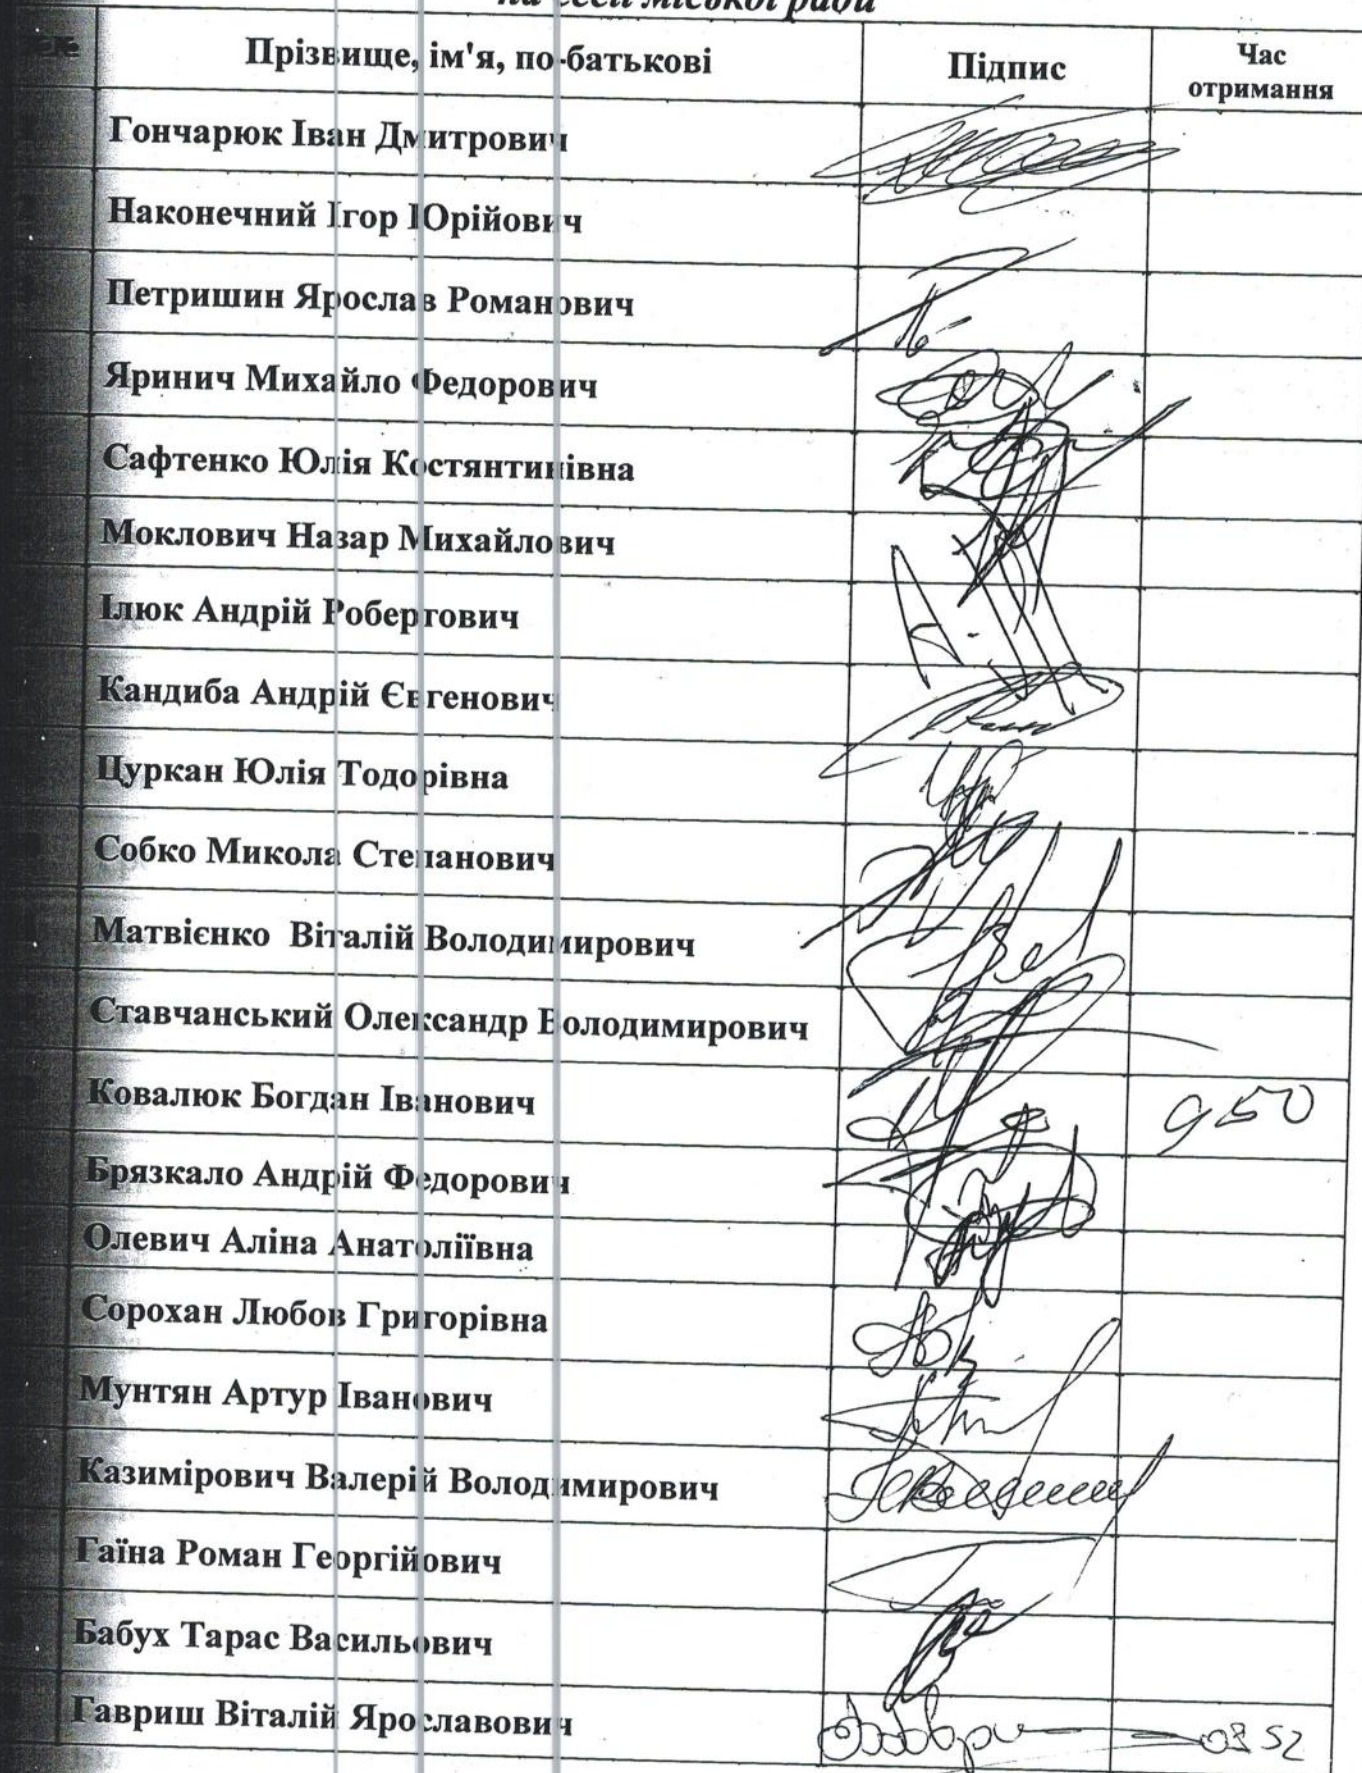 на сесії міської ради
Прізвище, ім'я, по-батькові Підпис Час отримання
Гончарюк Іван Дмитрович
Наконечний Ігор Юрійович
Петришин Ярослав Романович
Яринич Михайло Федорович
Сафтенко Юлія Костянтинівна
Моклович Назар Михайлович
Ілюк Андрій Робертович
Кандиба Андрій Євгенович
Цуркан Юлія Тодорівна
Собко Микола Степанович
Матвієнко Віталій Володимирович
Ставчанський Олександр Володимирович
Ковалюк Богдан Іванович 950
Брязкало Андрій Федорович
Олевич Аліна Анатоліївна
Сорохан Любов Григорівна
Мунтян Артур Іванович
Казимірович Валерій Володимирович
Гаїна Роман Георгійович
Бабух Тарас Васильович
Гавриш Віталій Ярославович